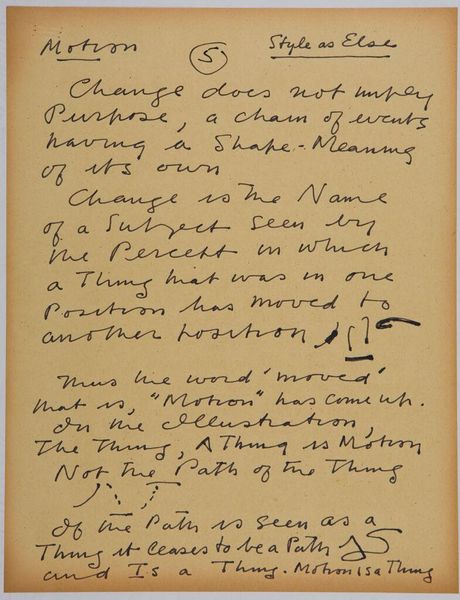 Motion 5 Style as Else
Change does not imply
Purpose, a chain of events
having a Shape-Meaning
of its own
Change is the Name
of a Subject seen by
the Percept in which
a Thing that was in one
Position has moved to
another position
Thus the word 'moved'
that is, "Motion" has come up.
In the Illustration,
The Thing, A Thing is Motion
Not the Path of the Thing
If the Path is seen as a
Thing it ceases to be a Path
and Is a Thing. Motion is a Thing